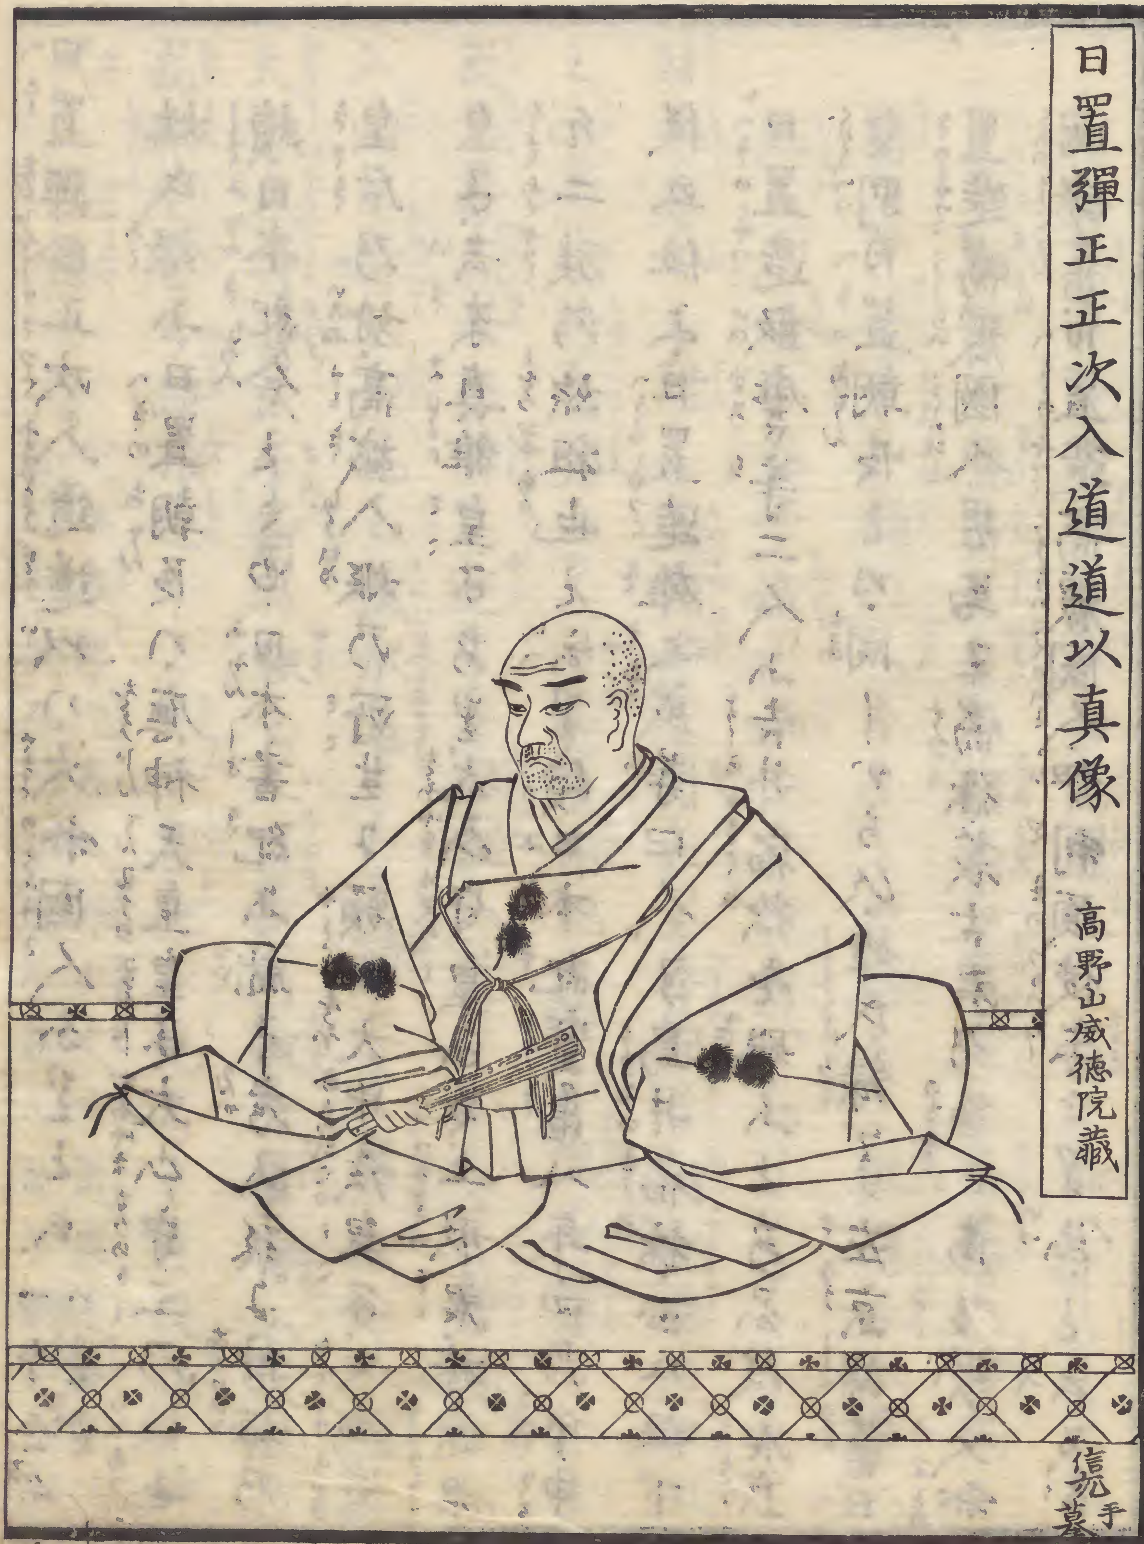 日置彈正正次入道道以真像
高野山威徳院藏
信尭
手摹